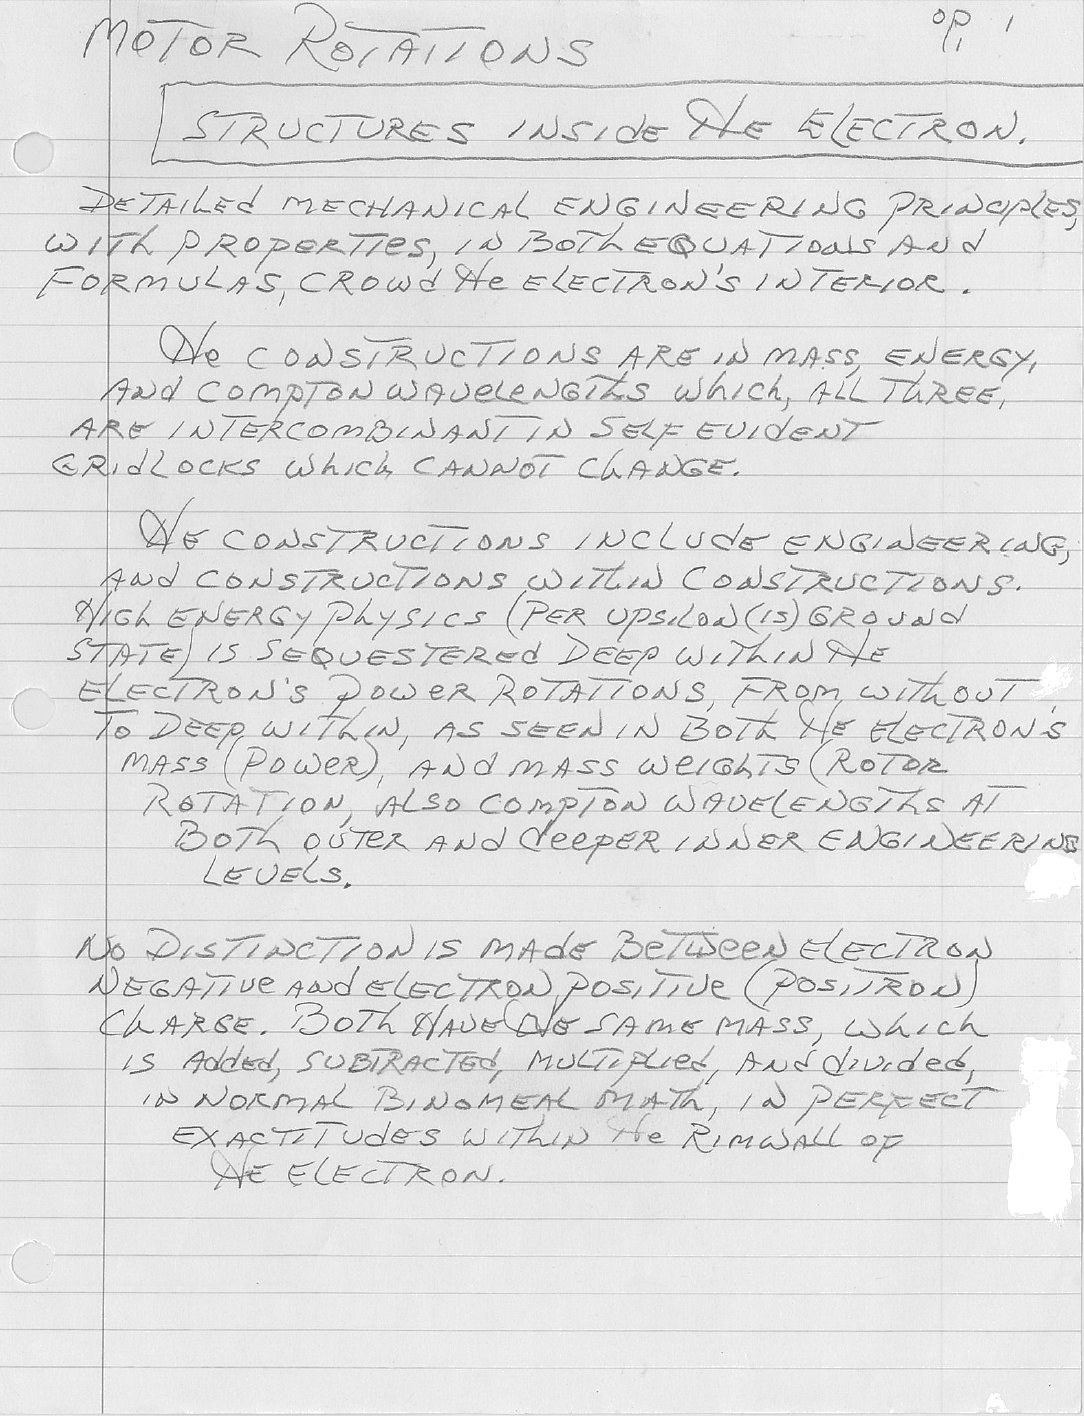 MOTOR ROTATIONS
op. 1
STRUCTURES INSIDE THE ELECTRON.
DETAILED MECHANICAL ENGINEERING PRINCIPLES,
WITH PROPERTIES, IN BOTH EQUATIONS AND
FORMULAS, CROWD THE ELECTRON'S INTERIOR.
THE CONSTRUCTIONS ARE IN MASS, ENERGY,
AND COMPTON WAVELENGTHS WHICH, ALL THREE,
ARE INTERCOMBINANT IN SELF EVIDENT
GRIDLOCKS WHICH CANNOT CHANGE.
THE CONSTRUCTIONS INCLUDE ENGINEERING,
AND CONSTRUCTIONS WITHIN CONSTRUCTIONS.
HIGH ENERGY PHYSICS (PER UPSILON (1S) GROUND
STATE) IS SEQUESTERED DEEP WITHIN THE
ELECTRON'S POWER ROTATIONS, FROM WITHOUT
TO DEEP WITHIN, AS SEEN IN BOTH THE ELECTRON'S
MASS (POWER), AND MASS WEIGHTS (ROTOR
ROTATION, ALSO COMPTON WAVELENGTHS AT
BOTH OUTER AND DEEPER INNER ENGINEERING
LEVELS.
NO DISTINCTION IS MADE BETWEEN ELECTRON
NEGATIVE AND ELECTRON POSITIVE (POSITRON)
CHARGE. BOTH HAVE THE SAME MASS, WHICH
IS ADDED, SUBTRACTED, MULTIPLIED, AND DIVIDED,
IN NORMAL BINOMEAL MATH, IN PERFECT
EXACTITUDES WITHIN THE RIMWALL OF
THE ELECTRON.